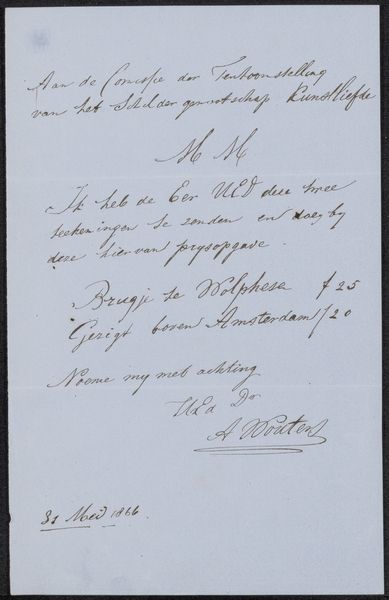 Aan de Comissie der Tentoonstelling
van het Schilder genootschap Kunstliefde
M M
Ik heb de Eer UED deze twee
teekeningen te zenden en voeg by
deze hiervan prysopgave.
Brugje te Wolphesen f 25
Gezigt boven Amsterdam f 20
Noeme my met achting
UEd Dr
A Wouters
31 Mei 1866.